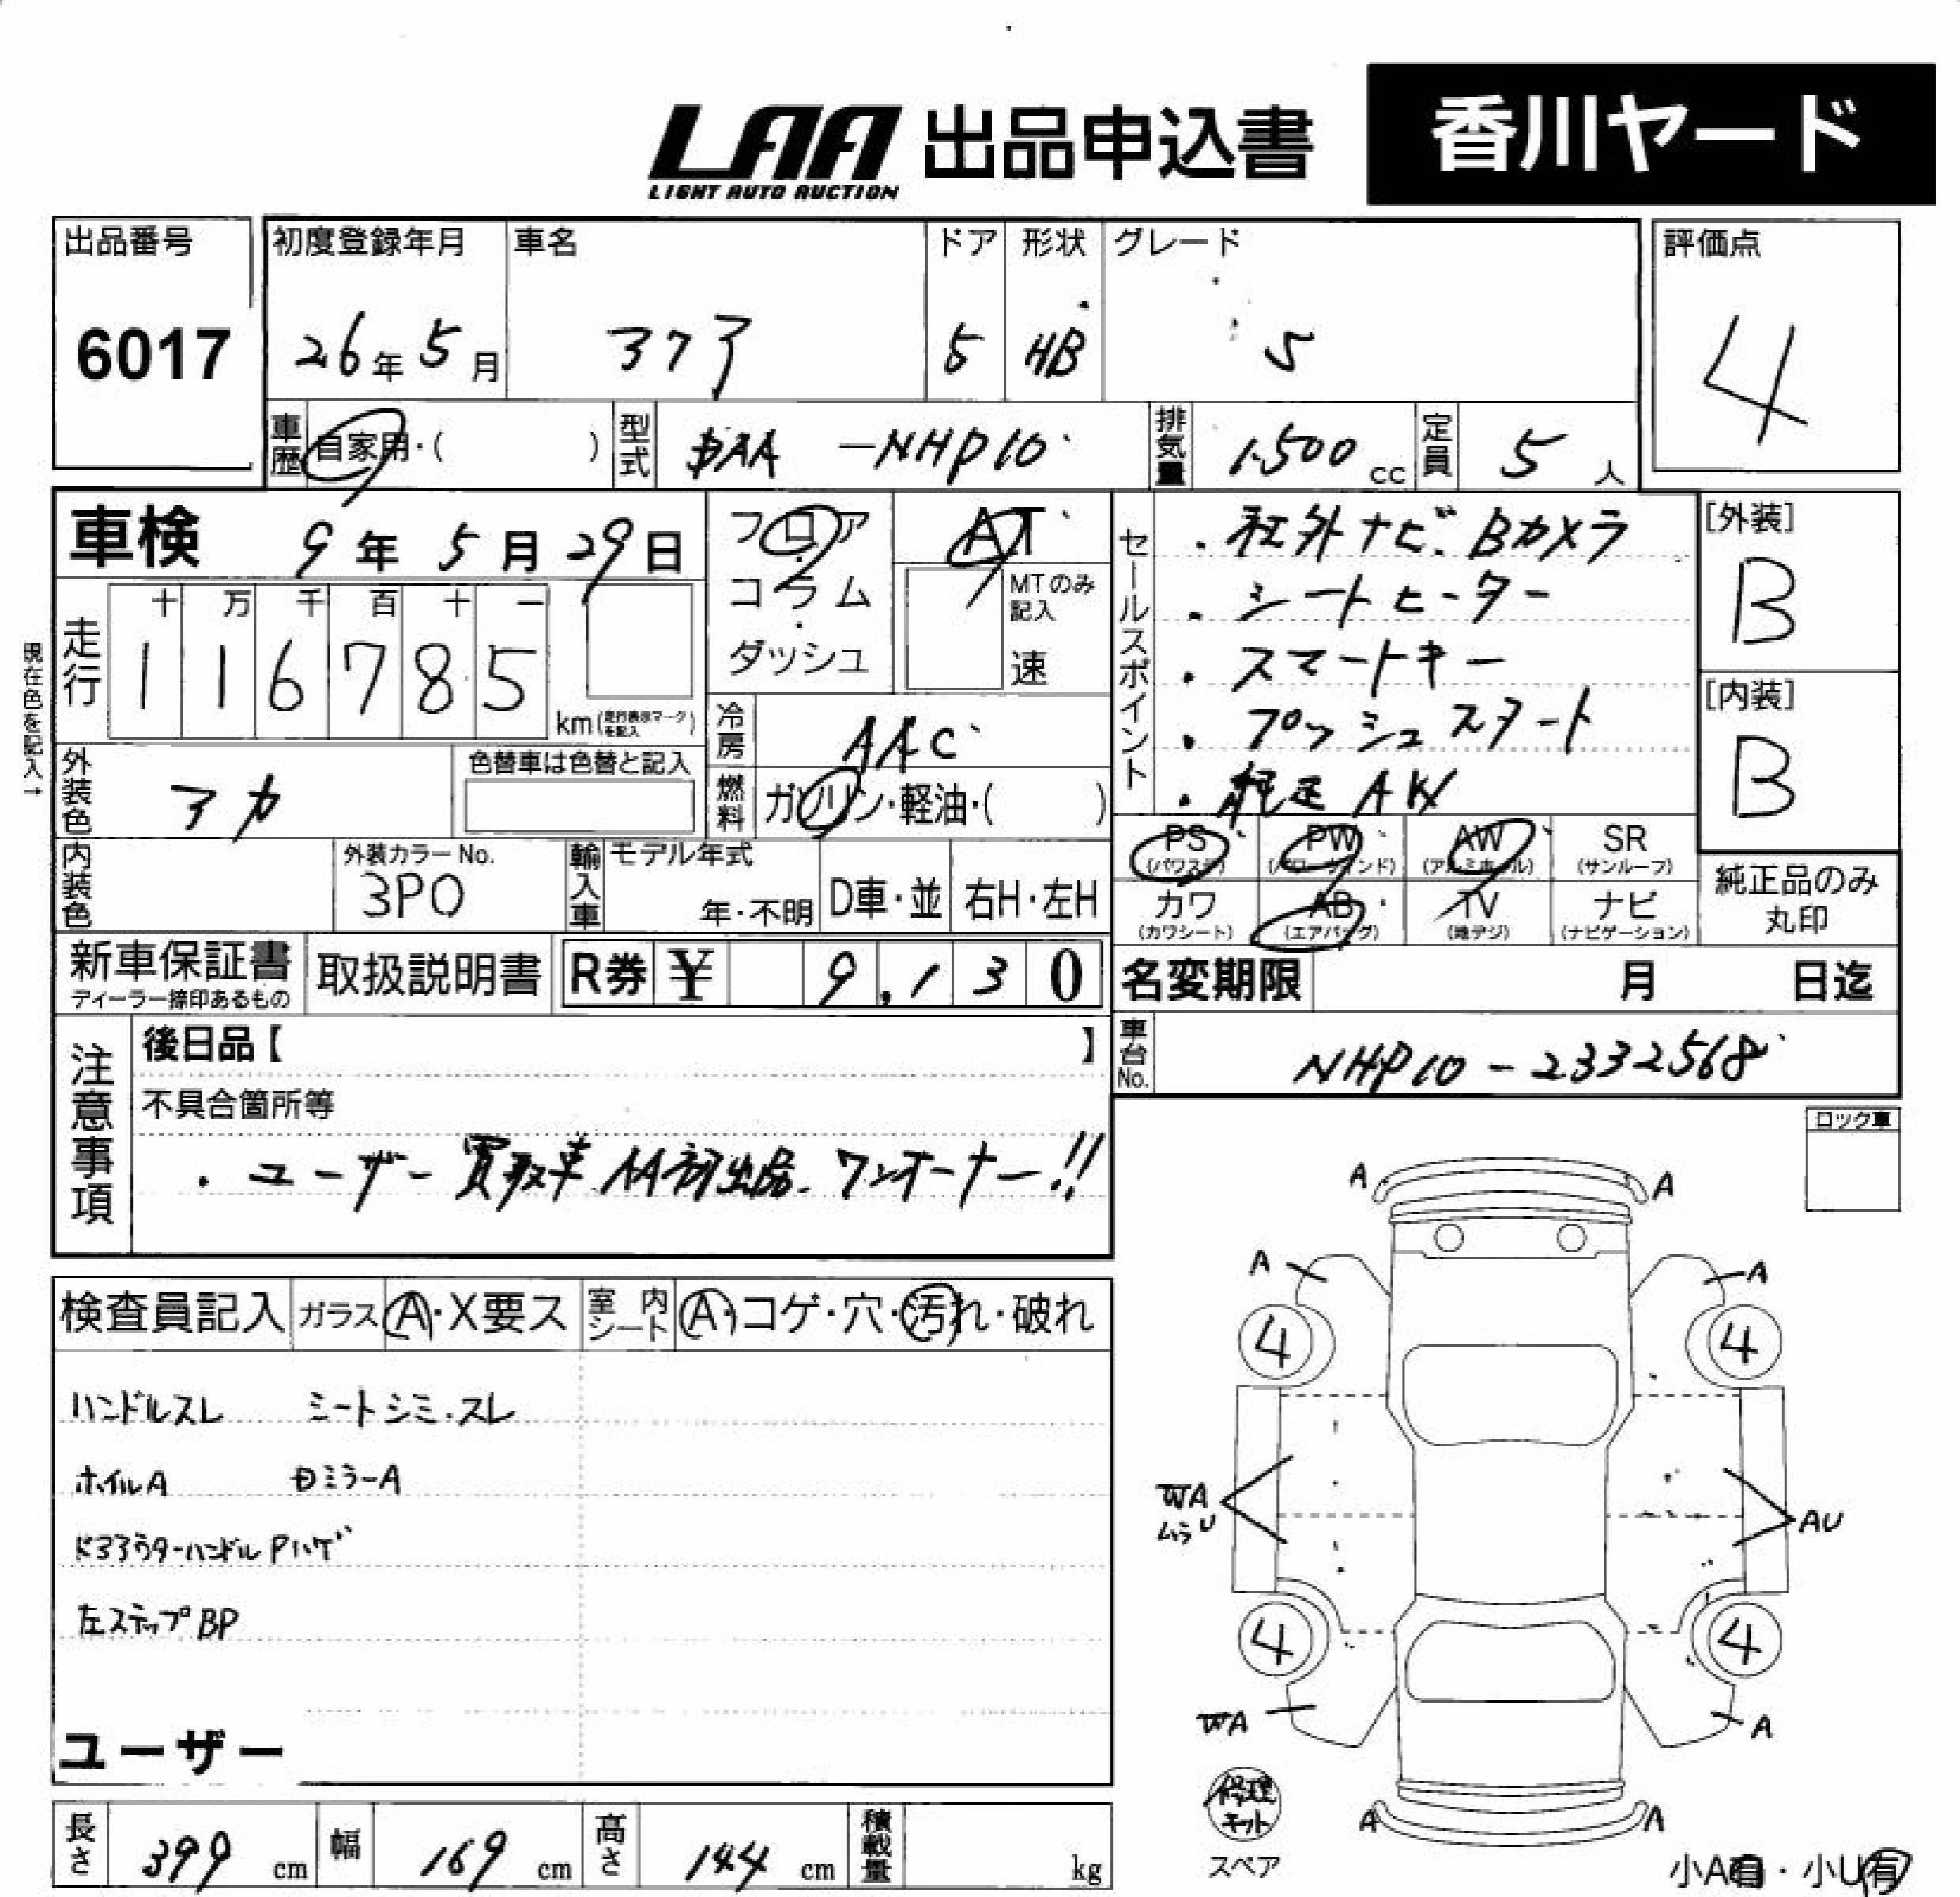 LAA 出品申込書 香川ヤード
LIGHT AUTO AUCTION
出品番号 6017
初度登録年月 26年5月
車名 アクア
ドア 5
形状 HB
グレード S
評価点 4
車歴 自家用・( )
型式 DAA-NHP10
排気量 1500cc
定員 5人
車検 9年5月29日
現在色を記入→
走行 十 万 千 百 十 一
116785 km (走行表示マークを記入)
フロア
コラム
ダッシュ
AT
MTのみ記入
速
冷房 AAC
燃料 ガソリン・軽油・( )
外装色 アカ
色替車は色替と記入
内装色
外装カラーNo. 3P0
輸入車 モデル年式 年・不明 D車・並 右H・左H
セールスポイント
・社外ナビ.Bカメラ
・シートヒーター
・スマートキー
・プッシュスタート
・純正AW
[外装] B
[内装] B
PS (パワステ) PW (パワーウインド) AW (アルミホール) SR (サンルーフ)
カワ (カワシート) AB (エアバッグ) TV (地デジ) ナビ (ナビゲーション)
純正品のみ丸印
新車保証書 ディーラー捺印あるもの
取扱説明書
R券 ¥ 9,130
名変期限 月 日迄
車台No. NHP10-2332568
注意事項
後日品【 】
不具合箇所等
・ユーザー買取車 AA初出品.ワンオーナー!!
ロック車
検査員記入 ガラス A・X要ス 室内シート A・コゲ・穴・汚れ・破れ
ハンドルスレ シートシミ・スレ
ホイルA DミラーA
ハンドルPハゲ
左ステップBP
ユーザー
A A
A A
4 4
WA
ムラU
AU
4 4
WA A
A A
修理キット
スペア
小A有・小U有
長さ 399cm
幅 169cm
高さ 144cm
積載量 kg